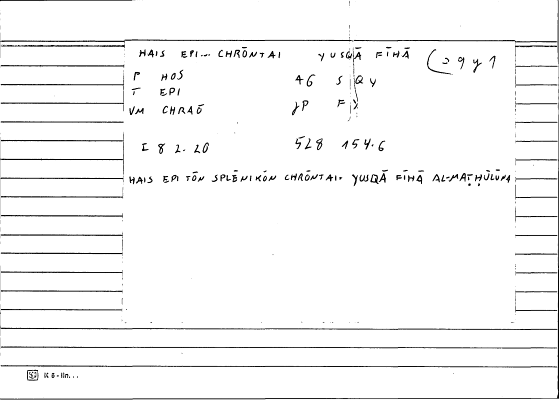 HAIS EPI... CHRŌNTAI YUSQĀ FĪHĀ
P HOS AG S QY
T EPI
VM CHRAŌ JP F
I 8 2. 20 528 154.6
HAIS EPI TŌN SPLĒNIKŌN CHRŌNTAI. YUSQĀ FĪHĀ AL-MAṬḤŪLŪNA
K 6 - lin...